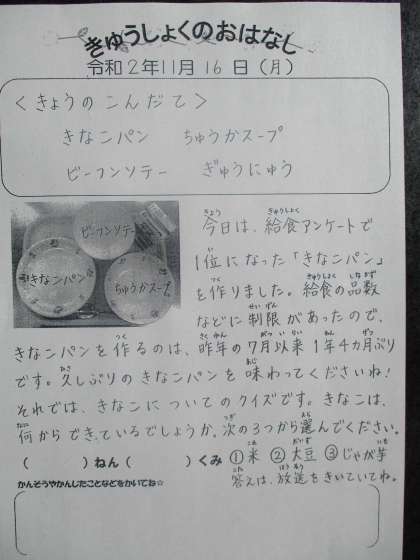 きゅうしょくのおはなし
令和2年11月16日(月)
<きょうのこんだて>
きなこパン ちゅうかスープ
ビーフンソテー ぎゅうにゅう
ビーフンソテー
きなこパン
ちゅうかスープ
今日は、給食アンケートで
1位になった「きなこパン」
を作りました。給食の品数
などに制限があったので、
きなこパンを作るのは、昨年の7月以来1年4カ月ぶり
です。久しぶりのきなこパンを味わってくださいね!
それでは、きなこについてのクイズです。きなこは、
何からできているでしょうか。次の3つから選んでください。
( )ねん( )くみ ①米 ②大豆 ③じゃが芋
かんそうやかんじたことなどをかいてね☆ 答えは、放送をきいていてね。